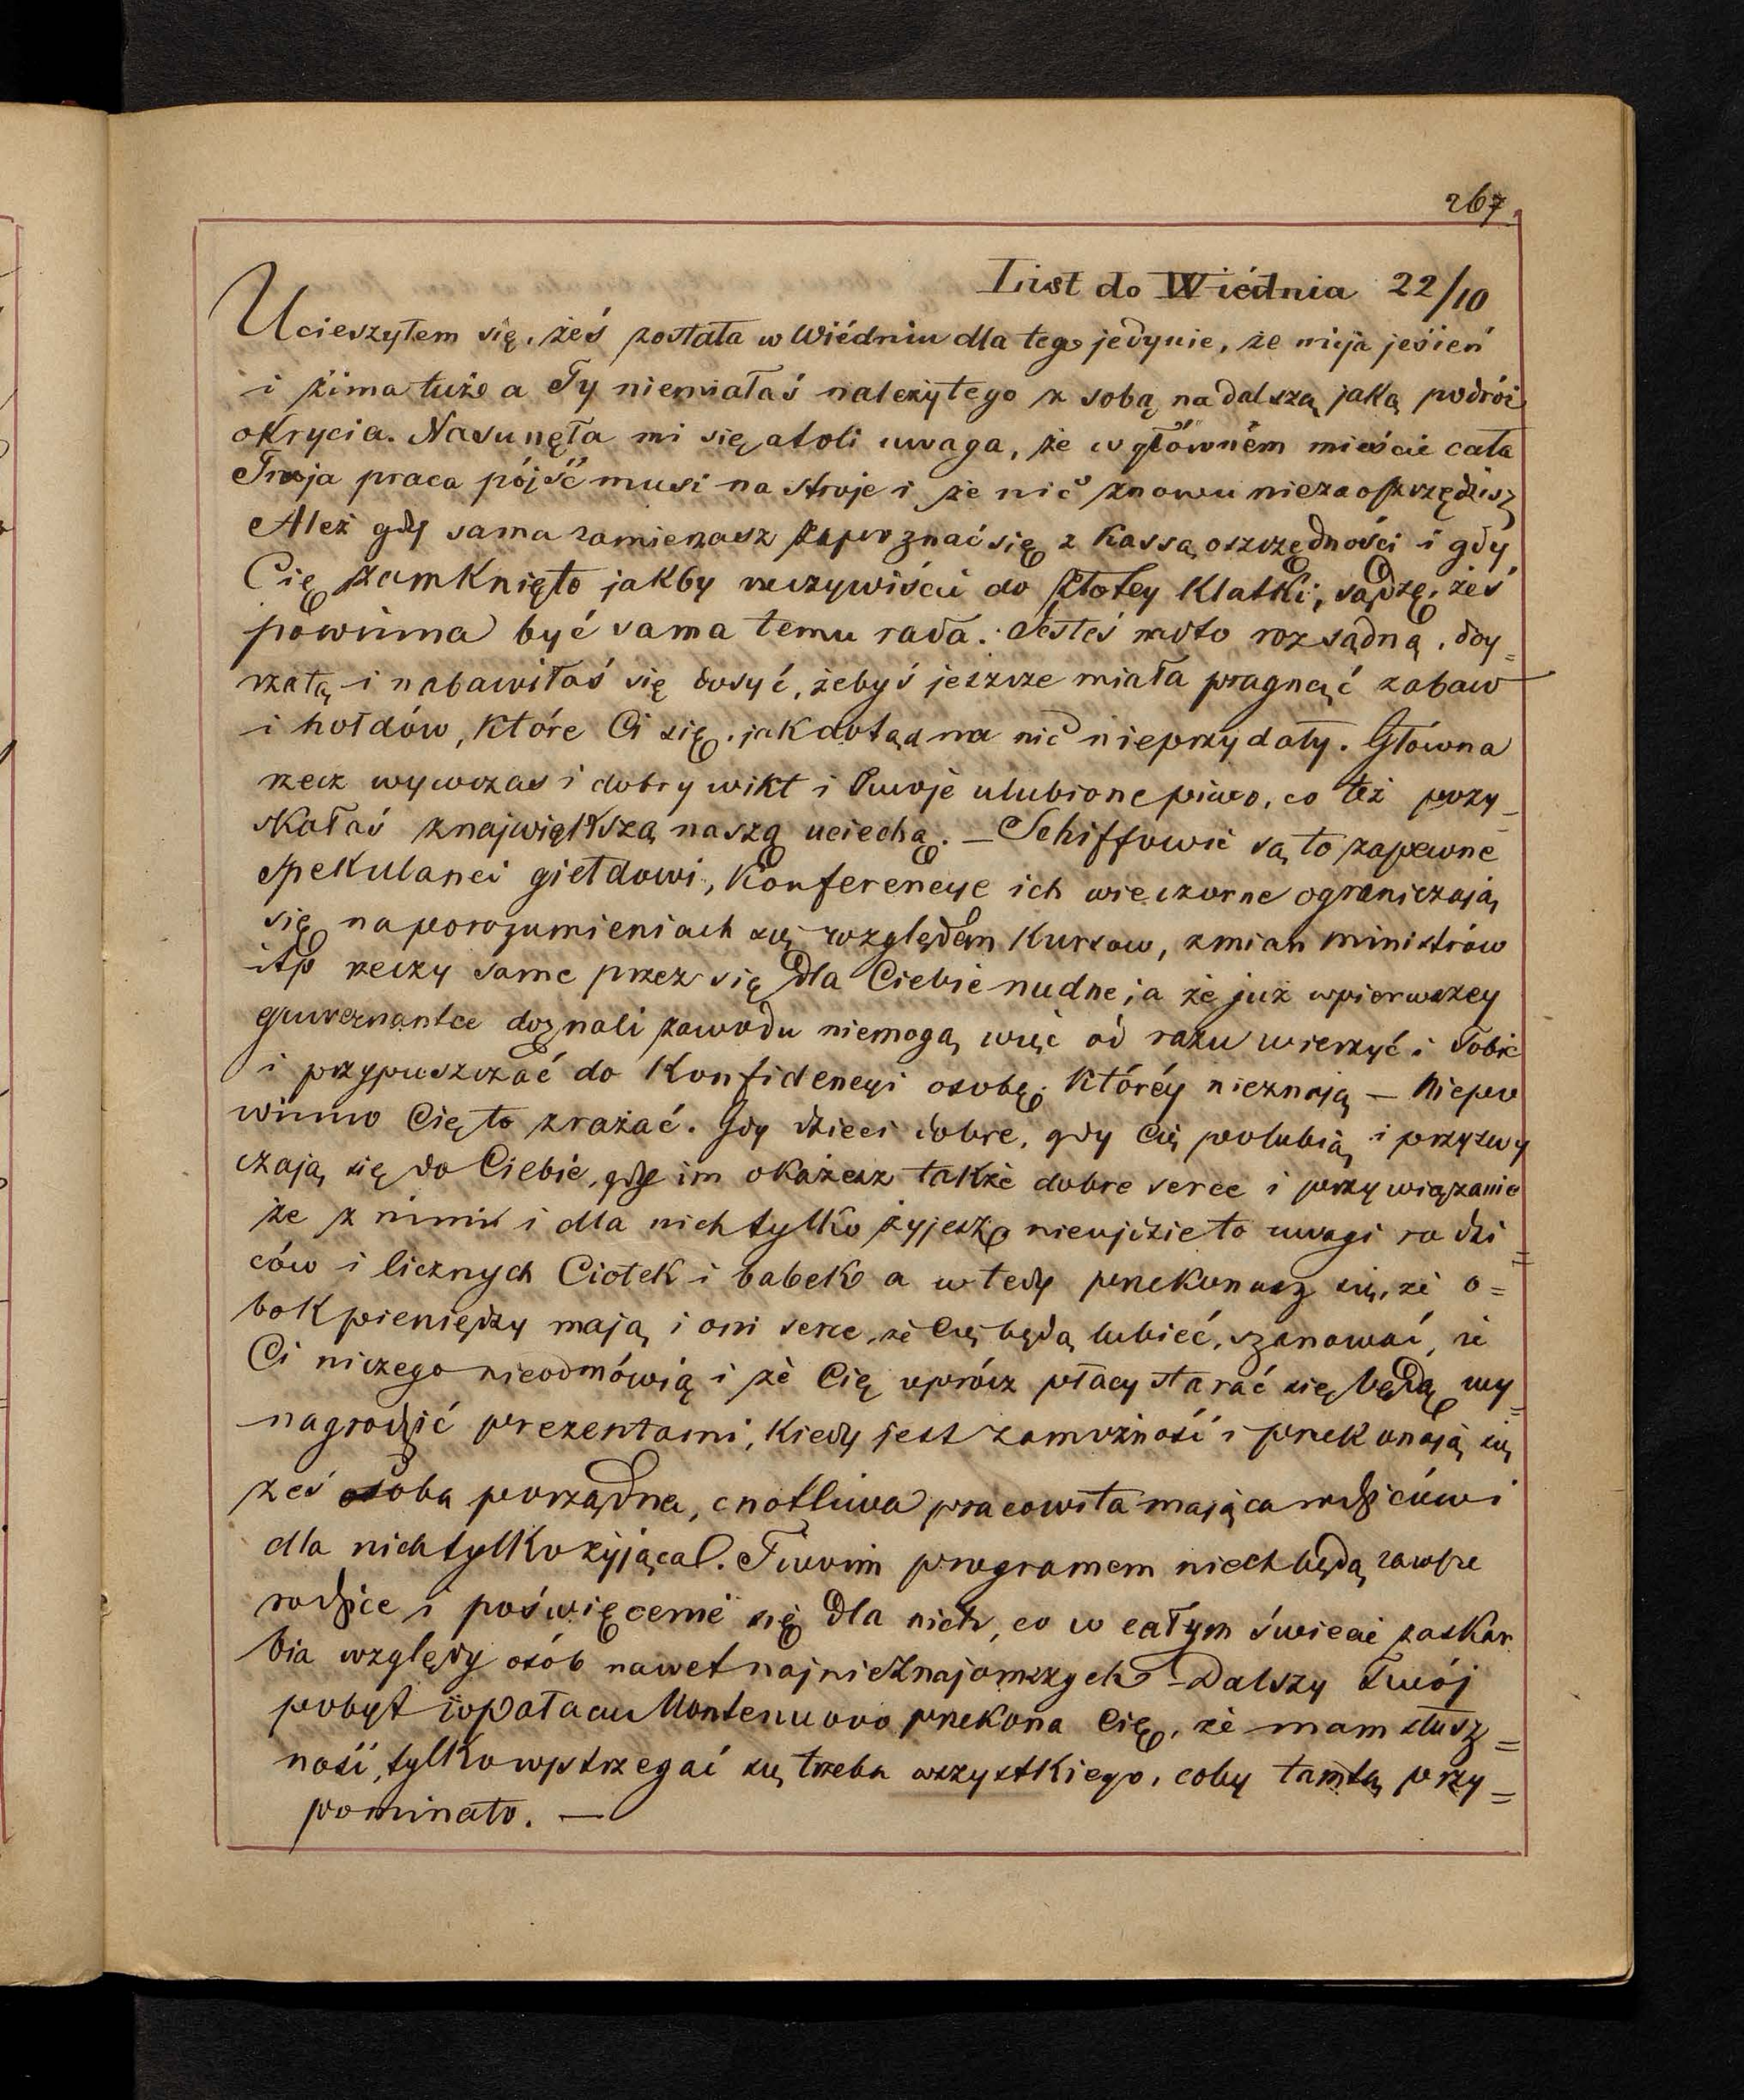 267.
List do Wiédnia 22/10
Ucieszyłem się, żeś została w Wiédniu dla tego jedynie, że mija jesień
i zima tuż a Ty niemiałaś należytego z sobą na dalszą jaką podróż
okrycia. Nasunęła mi się atoli uwaga, że w główném mieście cała
Twoja praca pójść musi na stroje i że nic znowu niezaoszczędzisz
Ależ gdy sama zamierzasz zapoznać się z Kassą oszczędności i gdy
Cię zamknięto jakby rzeczywiście do złotey Klatki, sądzę, żeś
powinna być sama temu rada. Jesteś na to rozsądną, doy=
rzałą i nabawiłaś się dosyć, żebyś jeszcze miała pragnąć zabaw
i hołdów, które Ci się, jak dotąd na nic nieprzydały. Główna
rzecz wywczas i dobry wikt i Twoje ulubione piwo, co też pozy_
skałaś z największą naszą uciechą. — Schiffowie są to zapewne
spekulanci giełdowi, Konferencye ich wieczorne ograniczają
się na porozumieniach się względem Kursow, zmian ministrów
itp rzeczy same przez się dla Ciebie nudne, a że już wpierwszey
guwernantce doznali zawodu niemogą więc od razu wierzyć i Tobie
i przypuszczać do Konfidencyi osobę, Któréy nieznają — Niepo
winno Cię to zrażać. Gdy dzieci dobre, gdy Cię polubią i przyzwy
czają się do Ciebie, gdy im okażesz także dobre serce i przywiązanie
że z nimi i dla nich tylko żyjesz, nieujdzie to uwagi rodzi=
ców i licznych Ciotek i babek a wtedy przekonasz się, że o=
bok pieniędzy mają i oni serce, że Cię będą lubieć, szanować, że
Ci niczego nieodmówią i że Cię oprócz płacy starać się będą wy=
nagrodzić prezentami, Kiedy jest zamożność i przekonają się
żeś osoba porządna, cnotliwa pracowita mająca rodziców i
dla nich tylko żyjąca. Twoim programem niech będą zawsze
rodzice i poświęcenie się dla nich, co w całym świecie zaskar
bia względy osób nawet najnieznajomszych — Dalszy Twój
pobyt w pałacu Montenuovo przekona Cię, że mam słusz=
ność, tylko wystrzegać się trzeba wszystkiego, coby tamtą przy=
pominało. —